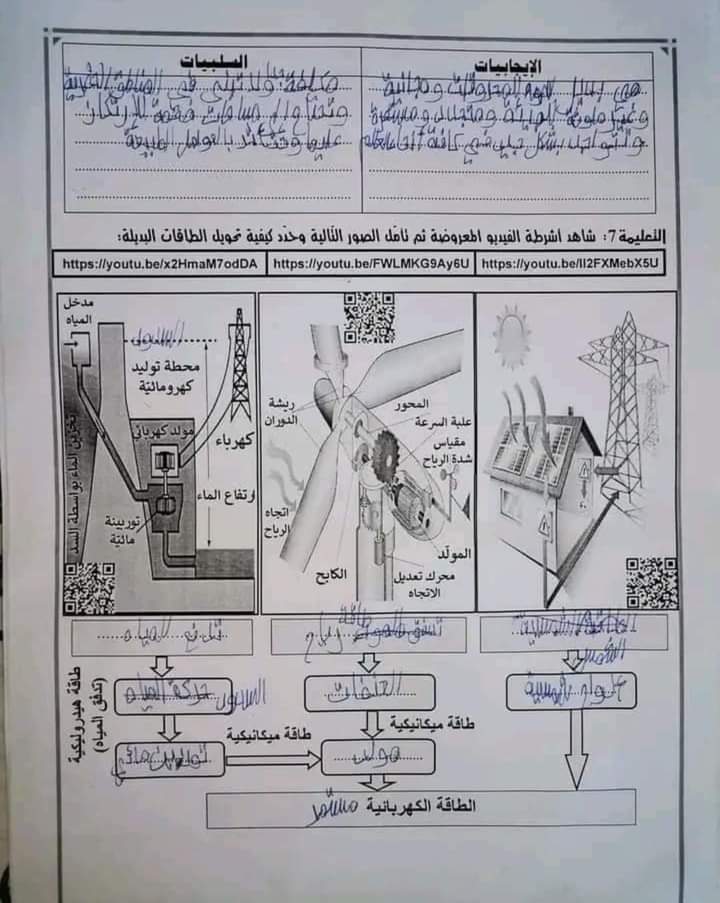 الإيجابيات
السلبيات
هي بديل المحروقات ومجانية
وغير ملوثة للبيئة ومتجددة ومستمرة
وتتواجد بشكل جيد في كافة أنحاء العالم
مكلفة ولا تبنى في المناطق
وتحتاج إلى مساحات للارتكاز
عليها وتتأثر بالعوامل الطبيعة
التعليمة 7: شاهد اشرطة الفيديو المعروضة ثم تأمل الصور التالية وحدّد كيفية تحويل الطاقات البديلة:
https://youtu.be/II2FXMebX5U
https://youtu.be/FWLMKG9Ay6U
https://youtu.be/x2HmaM7odDA
المحور
علبة السرعة
مقياس
شدة الرياح
ريشة
الدوران
اتجاه
الرياح
الكابح
المولّد
محرك تعديل
الاتجاه
مدخل
المياه
السدود
محطة توليد
كهرومائيّة
مولد كهربائي
كهرباء
ارتفاع الماء
توربينة
مائيّة
تخزين الماء بواسطة السد
الطاقة الشمسية
الشمس
طاقة
رياح
المياه
ألواح شمسية
العنفات
حركة المياه
السدود
طاقة هيدروليكية
(تدفق المياه)
طاقة ميكانيكية
طاقة ميكانيكية
مولد
توربين مائي
الطاقة الكهربائية مستمر